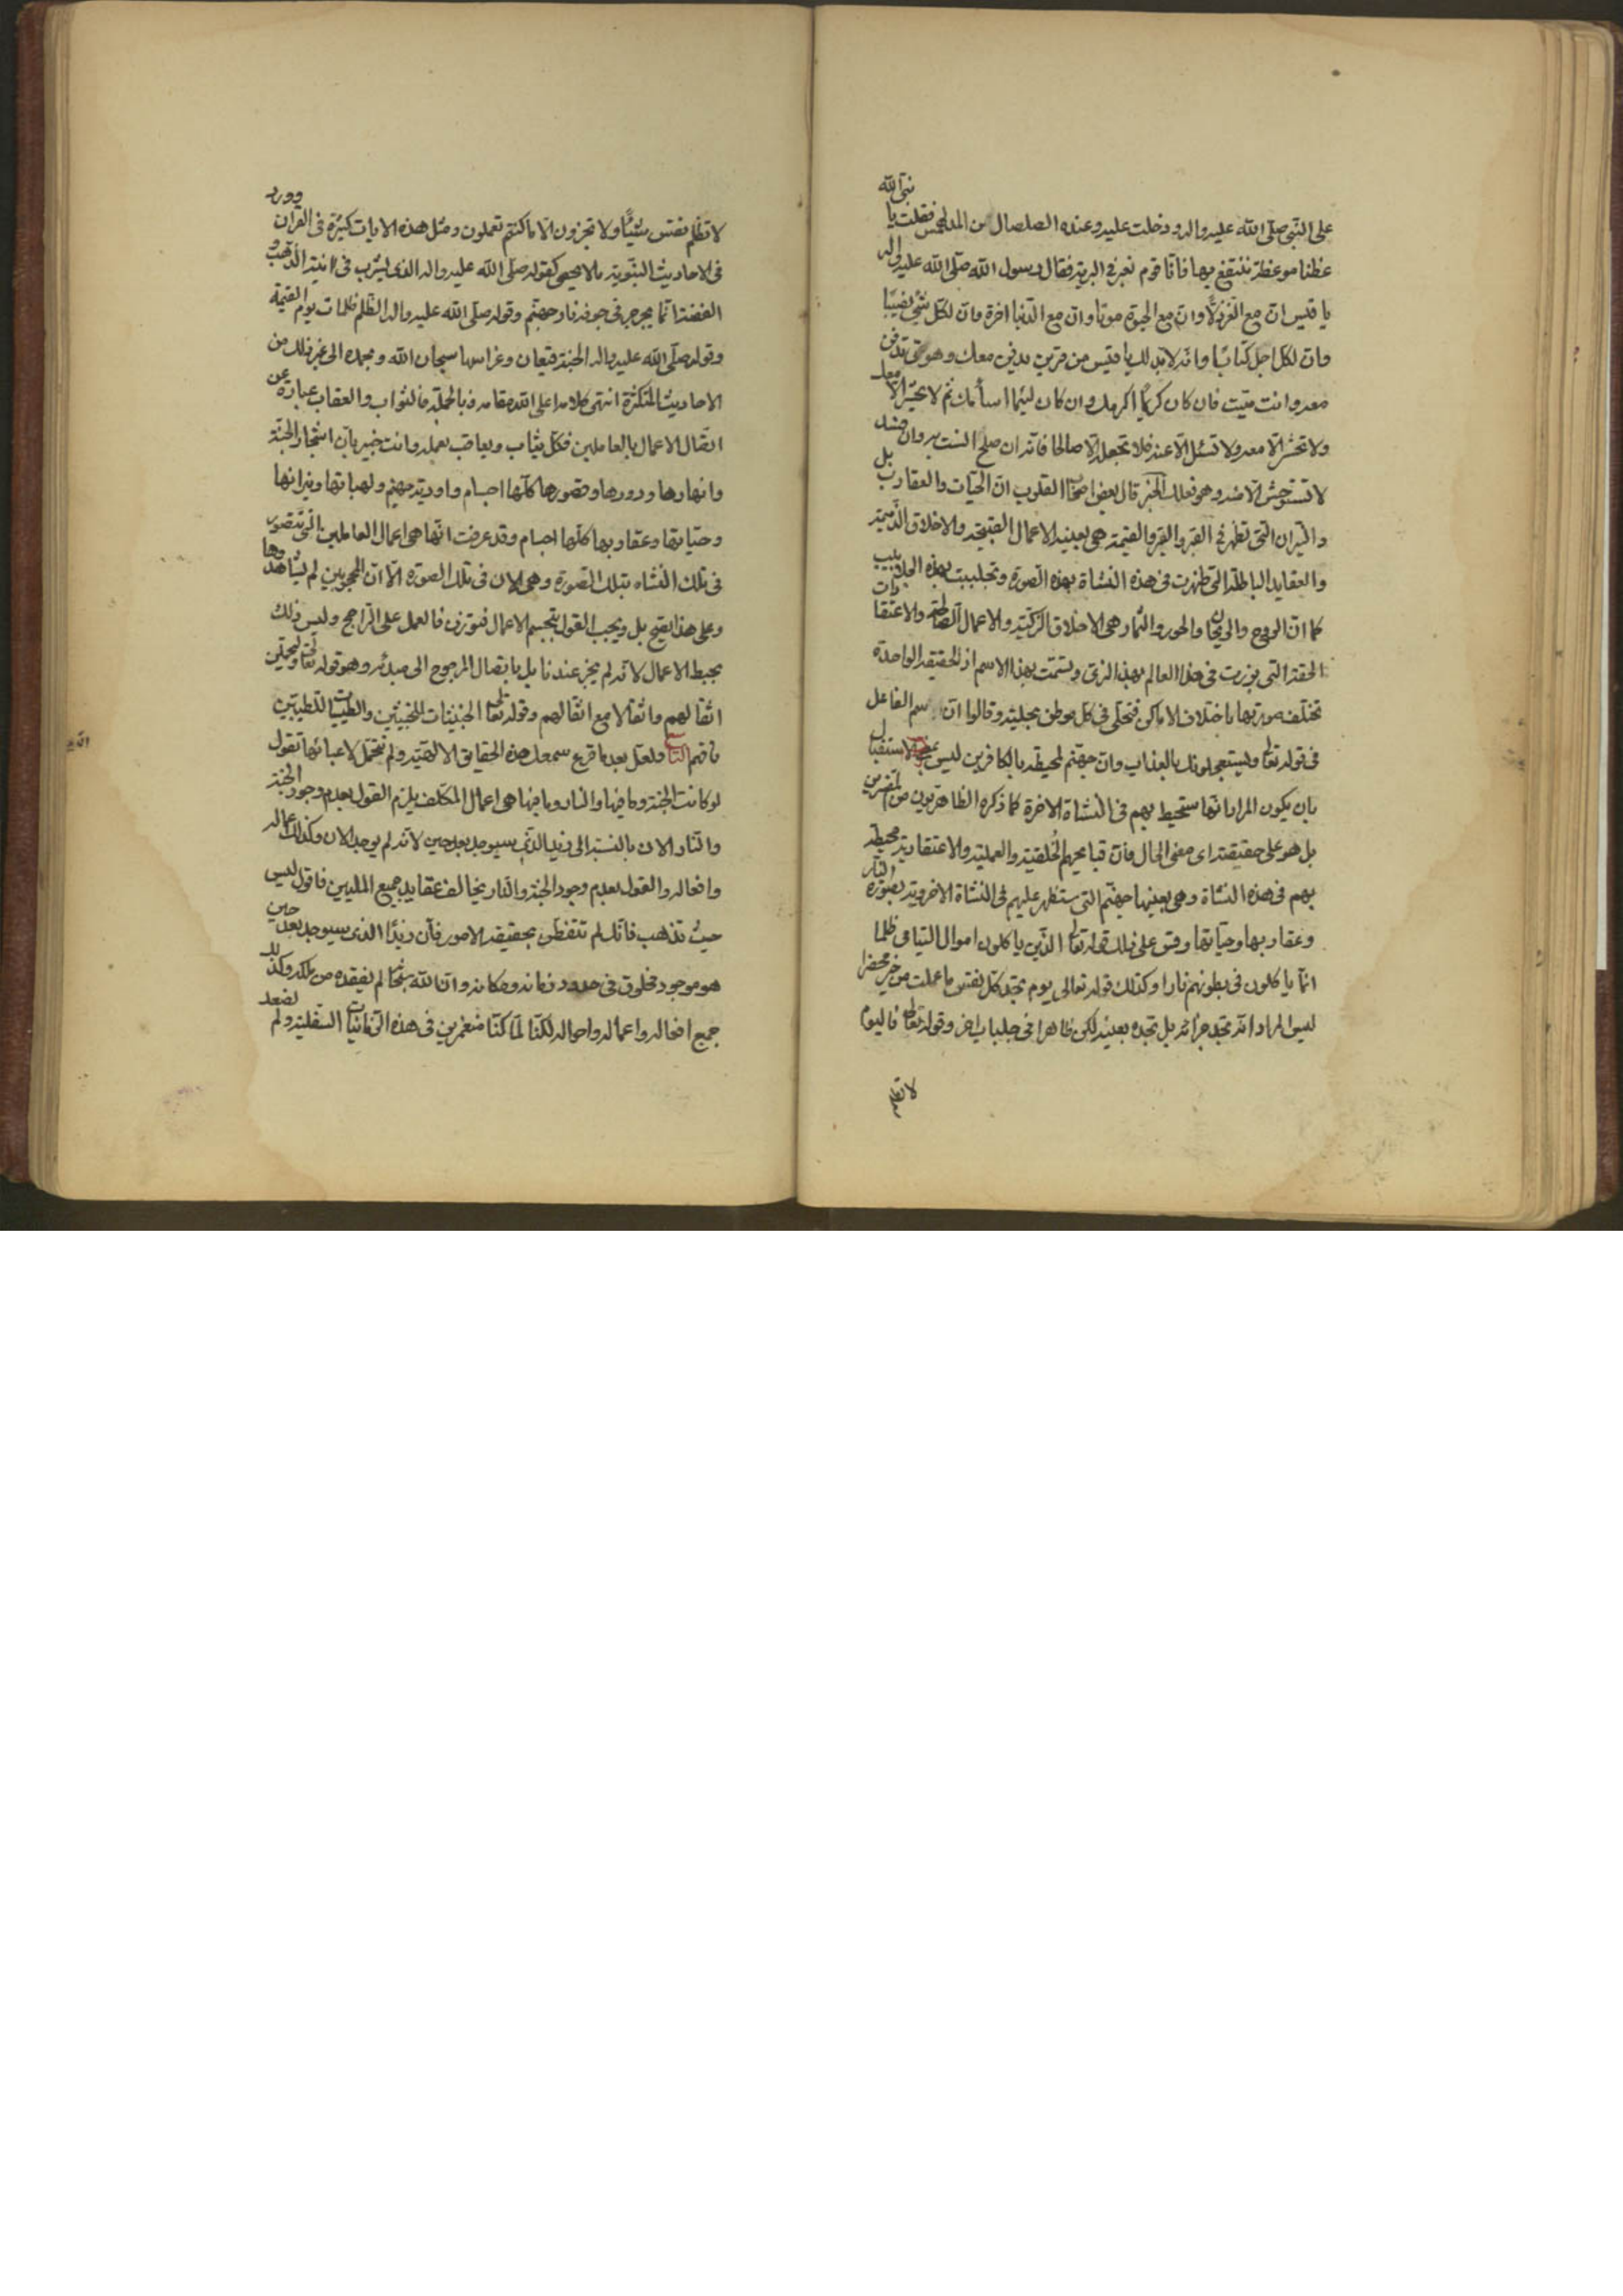 على النبي صلى الله عليه واله ودخلت عليه وعنده الصلصال بن الدلهمس فقلت يا نبى الله
عظنا موعظة ننتفع بها فانا قوم نعبر في البرية فقال رسول الله صلى الله عليه واله
يا قيس ان مع العز ذلا وان مع الحيوة موتا وان مع الدنيا اخرة وان لكل شئ
وان لكل اجل كتابا وانه لا بد لك يا قيس من قرين يدفن معك وهو حى تدفن
معه وانت ميت فان كان كريما اكرمك وان كان لئيما اسأمك ثم لا يحشر الا معك
ولا تحشر الا معه ولا تسئل الا عنه فلا تجعله الا صالحا فانه ان صلح انست به وان فسد
لا تستوحش الا منه وهو فعلك الخبر قال بعض اصحاب القلوب ان الحيات والعقارب بل
والنيران التى تظهر فى القبر والقيمة هى بعينها الاعمال القبيحة والاخلاق الذميمة
والعقايد الباطلة التى ظهرت فى هذه النشاة بهذه الصورة وتجلببت بهذه الجلابيب
كما ان الروح والريحان والحور والثمار هى الاخلاق الزكية والاعمال الصالحة والاعتقادات
الحقة التى برزت فى هذا العالم بهذا الزى وتسمت بهذا الاسم اذ الحقيقة الواحدة
تختلف صورتها باختلاف الاماكن فتحلى فى كل موطن بحلية وقالوا ان اسم الفاعل
فى قوله تعالى ويستعجلونك بالعذاب وان جهنم لمحيطة بالكافرين ليس بمعنى الاستقبال
بان يكون المراد انها ستحيط بهم فى النشاة الاخرة كما ذكره الظاهريون من المفسرين
بل هو على حقيقته اى معنى الحال فان قبايحهم الخلقية والعملية والاعتقادية محيطة
بهم فى هذه النشاة وهى بعينها جهنم التى ستظهر عليهم فى النشاة الاخروية بصورة النار
وعقاربها وحياتها وقس على ذلك قوله تعالى الذين ياكلون اموال اليتامى ظلما
انما ياكلون فى بطونهم نارا وكذلك قوله تعالى يوم تجد كل نفس ما عملت من خير محضرا
ليس المراد انه تجد جزائه بل تجده بعينه لكن ظاهرا فى جلباب اخر وقوله تعالى فاليوم
لا تظلم
لا تظلم نفس شيئا ولا تجزون الا ما كنتم تعملون ومثل هذه الايات كثيرة فى القران وورد
فى الاحاديث النبوية ما لا يحصى كقوله صلى الله عليه واله الذى يشرب فى انية الذهب و
الفضة انما يجرجر فى جوفه نار جهنم وقوله صلى الله عليه واله الظلم ظلمات يوم القيمة
وقوله صلى الله عليه واله الجنة قيعان وغراسها سبحان الله وبحمده الى غير ذلك من
الاحاديث المتكثرة انتهى كلامه اعلى الله مقامه فبالجملة فالثواب والعقاب عبارة عن
اتصال الاعمال بالعاملين فكل يثاب ويعاقب بعمله وانت خبير بان اشجار الجنة
وانهارها ودورها وقصورها كلها اجسام واودية جهنم ولهباتها ونيرانها
وحياتها وعقاربها كلها اجسام وقد عرفت انها هى اعمال العاملين التى تتصور
فى تلك النشاه بتلك الصورة وهى الان فى تلك الصورة الا ان المحجوبين لم يشاهدوها
وعلى هذا يصح بل ويجب القول بتجسم الاعمال فتوزن فالعمل على الراجح وليس ذلك
بحبط الاعمال لانه لم يجز عندنا بل بايصال المرجوح الى مبدئه وهو قوله تعالى وليحملن
اثقالهم واثقالا مع اثقالهم وقوله تعالى الخبيثات للخبيثين والطيبات للطيبين
فافهم ولعل بعد ما قرع سمعك هذه الحقايق الالهية ولم تحتمل لاعبائها تقول
لو كانت الجنة وما فيها والنار وما فيها هى اعمال المكلف يلزم القول بعدم وجود الجنة
والنار الان بالنسبة الى زيد الذى سيوجد بعد حين لانه لم يوجد الان وكذلك اعماله
وافعاله والقول بعدم وجود الجنة والنار يخالف عقايد جميع المليين فاقول ليس
حيث تذهب فانك لم تتفطن بحقيقة الامور فان زيدا الذى سيوجد بعد حين
هو موجود مخلوق فى حدود زمانه ومكانه وان الله سبحانه لم يفقده من ملكه وكذلك
جميع افعاله واعماله واحواله لكنا لما كنا منغمرين فى هذه الزمانيات السفلية ولم نصعد